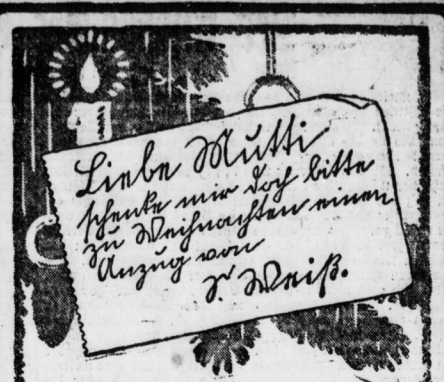 Liebe Mutti
schenke mir doch bitte
zu Weihnachten einen
Anzug von
S. Weiß.